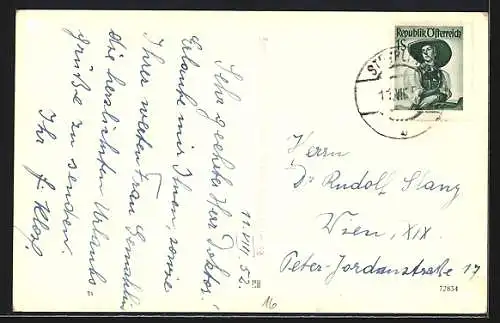 11. VIII. 52.
Sehr geehrter Herr Doktor!
Erlaube mir Ihnen, sowie
Ihrer werten Frau Gemahlin
die herzlichsten Urlaubs=
grüße zu senden.
Ihr
Republik Österreich
1S
Herrn
Dr Rudolf Stanz
Wien, XIX.
Peter-Jordanstraße 17
72834
16